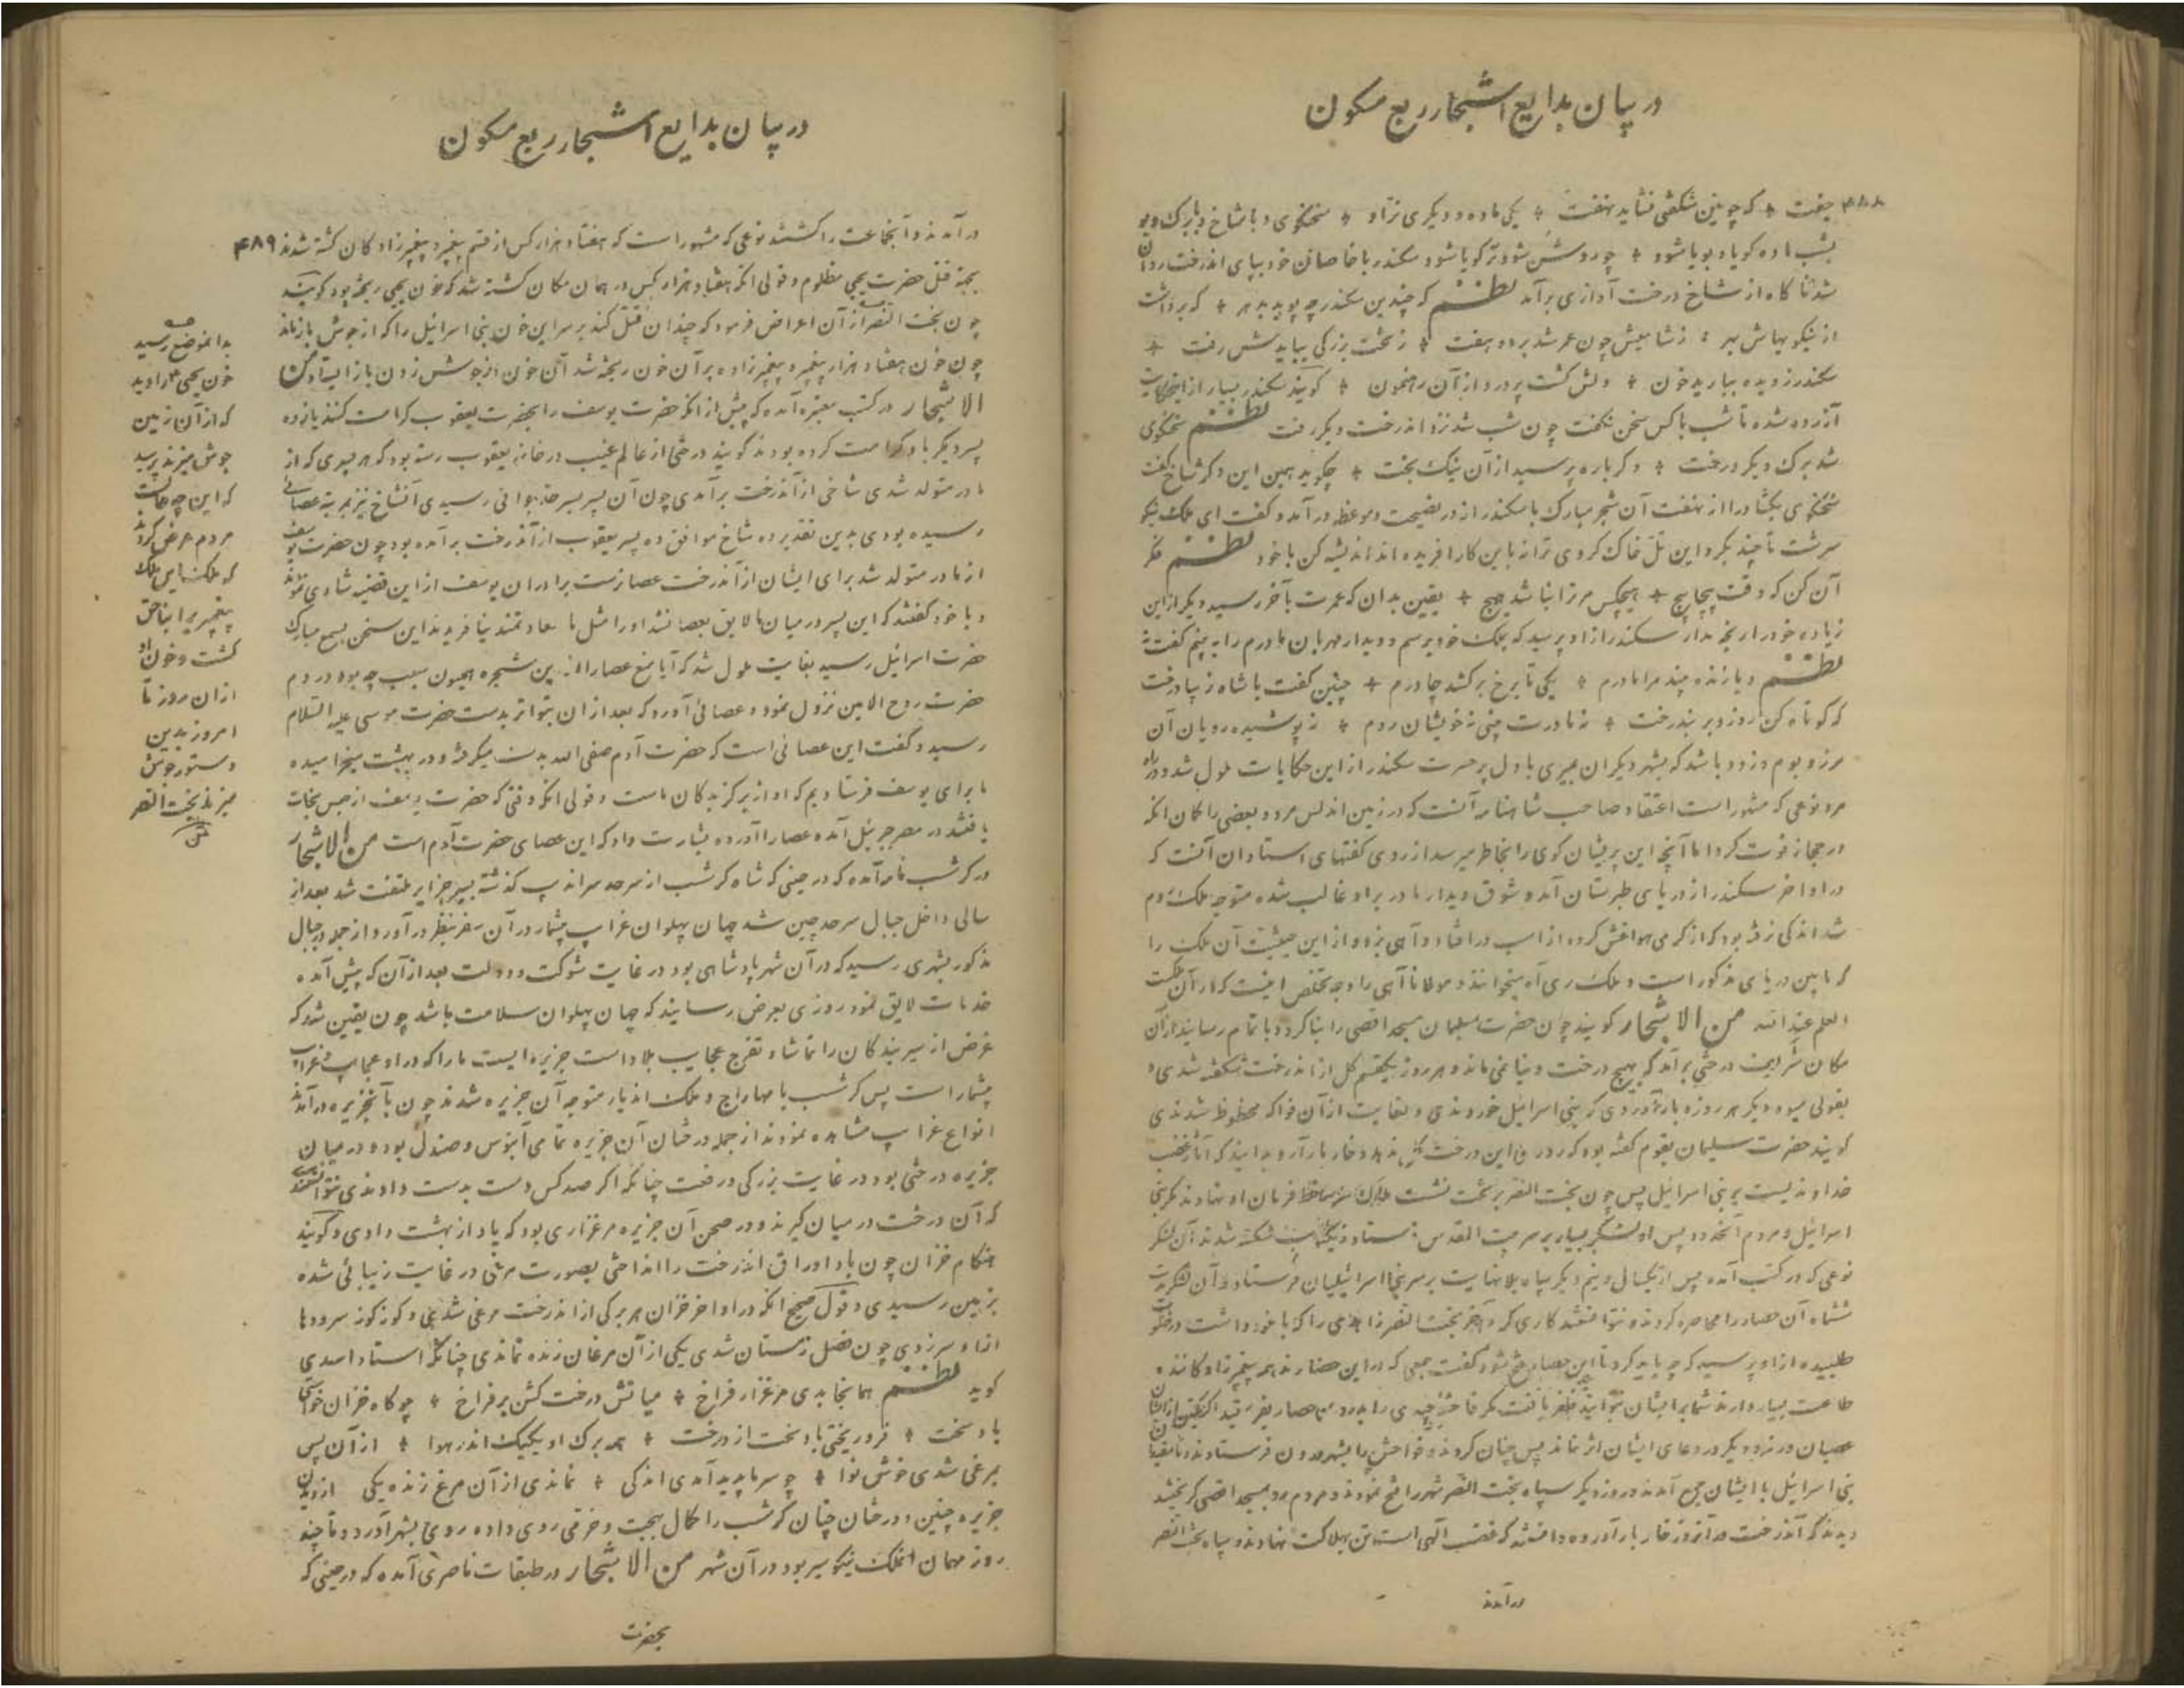 در بیان بدایع اشجار ربع مسکون
۴۸۸ جفت * که چونین شگفتی نشاید نهفت * یکی ماده و دیگری نر او * سخنگوی و با شاخ و با برک و بو
بشب ماده کویا و بویا شود * چو روشن شود نر کویا شود سکندر با خاصان خود بپای اندرخت روان
شد ناکاه از شاخ درخت آوازی برآمد نظم که چندین سکندر چه پوید بدهر * که برداشت
از نیکویهاش بهر * ز شاهیش چون عمر شد بر دو هفت * ز تخت بزرکی ببایدش رفت *
سکندر ز دیده ببارید خون * دلش کشت پر درد از آن رهنمون * کویند سکندر بسیار از این حکایت
آزرده شده تا شب با کس سخن نکفت چون شب شد نزد اندرخت دیگر رفت نظم سخنکوی
شد برک دیگر درخت * دکرباره پرسید از آن نیک بخت * چکوید همین این دکر شاخ کفت
سخنکوی بکشاد راز از نهفت آن شجر مبارک با سکندر از در نصیحت و موعظه درآمد و کفت ای ملک نیکو
سرشت تا چند بکرد این تل خاک کردی ترا نه باین کار افریده اند اندیشه کن با خود نظم فکر
آن کن که وقت پیچاپیچ * هیچکس مر ترا نباشد هیچ * یقین بدان که عمرت بآخر رسید دیگر از این
زیاده خود را رنجه مدار سکندر از او پرسید که بملک خود برسم و دیدار مهربان مادرم را به بینم کفت نه
نظم و یا زنده بیند مرا مادرم * یکی تا برخ برکشد چادرم * چنین کفت با شاه زیبا درخت
که کوتاه کن روز و بر بند رخت * نه مادرت بینی نه خویشان روم * نه پوشیده رویان آن
مرز و بوم و زود باشد که بشهر دیگران بمیری با دل پر حسرت سکندر از این حکایات ملول شد و در راه
مرد نوعی که مشهور است اعتقاد صاحب شاهنامه آنست که در زمین اندلس مرد و بعضی را کمان انکه
در حجاز فوت کرد اما آنچه این پریشان کوی را بخاطر میرسد از روی کفتهای استادان آنست که
در اواخر سکندر از دریای طبرستان آمد و شوق دیدار مادر بر او غالب شده متوجه ملک روم
شد اندکی رفته بود که از کرمی هوا غش کرده از اسب در افتاد و آهی بزد و از این حیثیت آن ملک را
که مابین دریای مذکور است و ملک ری آه میخوانند و مولانا آهی را وجه تخلص اینست که از آن ملکست
العلم عند الله من الاشجار کویند چون حضرت سلیمان مسجد اقصی را بنا کرد و با تمام رسانید از آن
مکان شریف درختی برآمد که بهیچ درخت دنیا نمی ماند و هر روز یکقسم کل از اندرخت شکفته شدی و
بقولی میوه دیگر هر روزه بار آوردی که بنی اسرائیل خوردندی و بغایت از آن فواکه محظوظ شدندی
کویند حضرت سلیمان بقوم کفته بود که روزی این درخت کل ندهد و خار بار آرد بدانید که آثار غضب
خداوندیست بر بنی اسرائیل پس چون بخت النصر بر تخت نشست ملوک سر بخط فرمان او نهادند مکر بنی
اسرائیل و مردم آنحدود پس او لشکر بسیار بر سر بیت المقدس فرستاد شکسته شدند آن لشکر
نوعی که در کتب آمده پس از یکسال و نیم دیگر سپاه بلا نهایت بر سر بنی اسرائیلیان فرستاد و آن لشکر مدت
ششماه آن حصار را محاصره کردند و نتوانستند کاری کرد آخر بخت النصر زاهدی را که با خود داشت در خلوت
طلبیده از او پرسید که چه باید کرد تا این حصار فتح شود کفت جمعی که در این حصارند همه پیغمبرزادکانند و
طاعت بسیار دارند شما بر ایشان نتوانید ظفر یافت مکر فاحشه چندی را بدرون حصار بفرستید اکر یکتن از ایشان
عصیان ورزد دیگر در دعای ایشان اثر نماند پس چنان کردند و فواحش را بشهر درون فرستادند تا بعضی
بنی اسرائیل با ایشان جمع آمدند روز دیگر سپاه بخت النصر شهر را فتح نمودند و مردم رو بمسجد اقصی کریختند
دیدند که آندرخت در آنروز خار بار آورده دانستند که غضب آلهی است تن بهلاکت نهادند و سپاه بخت النصر
در آمدند
در بیان بدایع اشجار ربع مسکون
درآمدند و آنجماعت را کشتند نوعی که مشهور است که هفتاد هزار کس از قسم پیغمبر و پیغمبرزادکان کشته شدند ۴۸۹
بجهة قتل حضرت یحیی مظلوم و قولی انکه هفتاد هزار کس در همان مکان کشته شد که خون یحیی ریخته بود کویند
چون بخت النصر از آن اعراض فرمود که چندان قتل کنند بر سر این خون بنی اسرائیل را که از جوش باز ماند
چون خون هفتاد هزار پیغمبر و پیغمبرزاده بر آن خون ریخته شد آن خون از جوشش زدن باز ایستاد من
الاشجار در کتب معتبره آمده که پیش از انکه حضرت یوسف را بحضرت یعقوب کرامت کنند یازده
پسر دیگر باو کرامت کرده بودند کویند درختی از عالم غیب در خانه یعقوب رسته بود که هر پسری که از
مادر متولد شدی شاخی از آندرخت برآمدی چون آن پسر بسرحد جوانی رسیدی آنشاخ نیز بمرتبه عصائی
رسیده بودی بدین تقدیر ده شاخ موافق ده پسر یعقوب از آندرخت برآمده بود چون حضرت یوسف
از مادر متولد شد برای ایشان از آندرخت عصا نرست برادران یوسف از این قضیه شادی نمودند
و با خود کفتند که این پسر در میان ما لایق بعصا نشد او را مثل ما سعادتمند نیافریدند این سخن بسمع مبارک
حضرت اسرائیل رسید بغایت ملول شد که آیا منع عصا را از این شجره همیون سبب چه بود در دم
حضرت روح الامین نزول نموده عصائی آورد که بعد از ان بتواتر بدست حضرت موسی علیه السلام
رسید و کفت این عصائی است که حضرت آدم صفی الله بدست میکرفت و در بهشت میخرامید
ما برای یوسف فرستادیم که او از برکزیدکان ماست و قولی انکه وقتی که حضرت یوسف از حبس نجات
یافتند در مصر جبرئیل آمده عصا را آورده بشارت داد که این عصای حضرت آدم است من الاشجار
در کرشسب نامه آمده که در حینی که شاه کرشسب از سرحد سراندیپ کذشته بسیر جزایر ملتفت شد بعد از
سالی داخل جبال سرحد چین شد جهان پهلوان غرایب بیشمار در آن سفر بنظر درآورد از جمله در جبال
مذکور بشهری رسید که در آن شهر پادشاهی بود در غایت شوکت و دولت بعد از آن که پیش آمده
خدمات لایق نمود روزی بعرض رسانید که جهان پهلوان سلامت باشد چون یقین شد که
غرض از سیر بندکان را تماشا و تفرج عجایب بلاد است جزیره ایست ما را که در او عجایب و غرایب
بیشمار است پس کرشسب با مهاراج و ملک اندیار متوجه آن جزیره شدند چون بآنجزیره درآمدند
انواع غرایب مشاهده نمودند از جمله درختان آن جزیره تمامی آبنوس و صندل بود و در میان
جزیره درختی بود در غایت بزرکی و رفعت چنانکه اکر صد کس دست بدست دادندی نتوانستندی
که آن درخت در میان کیرند و در صحن آن جزیره مرغزاری بود که یاد از بهشت دادی و کویند
هنکام خزان چون باد اوراق اندرخت را انداختی بصورت مرغی در غایت زیبائی شده
بزمین رسیدی و قول صحیح انکه در اواخر خزان هر برکی از اندرخت مرغی شدی و کوز کوز سرودها
از او سر زدی چون فصل زمستان شدی یکی از آن مرغان زنده نماندی چنانکه استاد اسدی
کوید نظم همانجا بدی مرغزار فراخ * میانش درخت کشن پر فراخ * چو کاه خزان خواستی
باد سخت * فرو ریختی باد سخت از درخت * همه برک او یکبیک اندر هوا * از آن پس
بمرغی شدی خوش نوا * چو سرما پدید آمدی اندکی * نماندی از آن مرغ زنده یکی از دیدن
جزیره چنین و درختان چنان کرشسب را کمال بهجت و خرمی روی داده روی بشهر آورد و تا چند
روز مهمان انملک نیکو سیر بود در آن شهر من الاشجار در طبقات ناصری آمده که در حینی که
بحضرت
بدانموضع رسید
خون یحیی را دید
که از آن زمین
جوش میزند پرسید
که این چه حالت
مردم عرض کردند
که ملک این ملک
پیغمبری را بناحق
کشت و خون او
از ان روز تا
امروز بدین
دستور جوش
میزند بخت النصر
متن